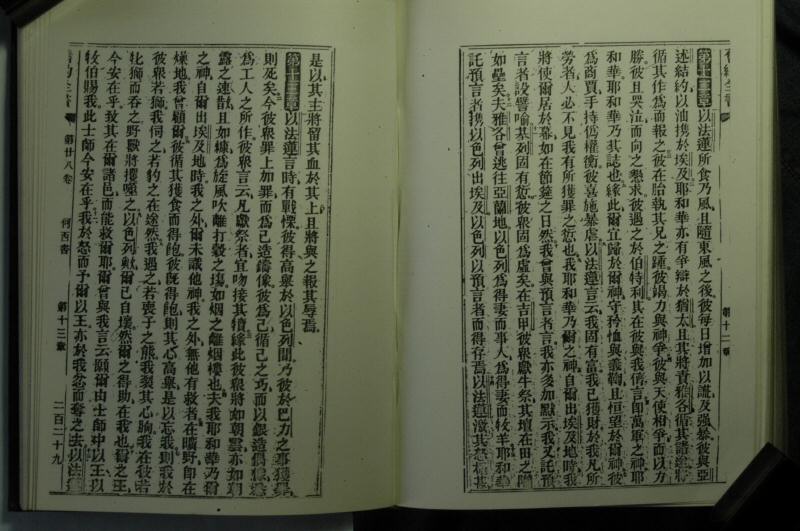 舊約全書
第十二章
第十二章以法蓮所食乃風且隨東風之後彼每日增加以謊及強暴彼與亞
述結約以油攜於埃及耶和華亦有爭辯於猶太且其將責雅各循其諸途將
循其作爲而報之彼在胎執其兄之踵彼錫力與神爭彼與天使相爭而以力
勝彼且哭泣而向之懇求彼遇之於伯特利其在彼與我儕言即萬軍之神耶
和華耶和華乃其誌也緣此爾宜歸於爾神守矜恤與義鞫且恒望於爾神彼
爲商賈手持僞權衡彼喜施暴虐以法蓮言云我固有富我已獲財於我凡所
勞者人必不見我有所獲罪之愆也我耶和華乃爾之神自爾出埃及地時我
將使爾居於幕如在節筵之日然我曾與預言者言我亦多加默示我又託預
言者設譬喻基列固有愆彼衆固爲虛矣在吉甲彼衆獻牛祭其壇在田之隴
如壘矣夫雅各曾逃往亞蘭地以色列爲得妻而事人爲得妻而牧羊耶和華
託預言者攜以色列出埃及以色列以預言者而得存焉以法蓮激其
是以其主將留其血於其上且將與之報其辱焉
第十三章以法蓮言時有戰慄彼得高舉於以色列間乃彼於巴力之事獲
則死矣今彼衆罪上加罪而爲己造鑄像彼爲己循己之巧而以銀造偶
爲工人之所作彼衆言云凡獻祭者宜吻接其犢緣此彼衆將如朝雲亦如朝
露之速散且如糠爲旋風吹離打穀之場如烟之離烟樓也夫我耶和華乃爾
之神自爾出埃及地時我之外爾未識他神我之外無他有救者在曠野即在
燥地我曾顧爾彼循其獲食而得飽彼旣得飽則其心高舉是以忘我則我於
彼衆若獅我伺之若豹之在途然我遇之若喪子之熊我裂其心胸我在彼若
牝獅而吞之野獸將攫噬之以色列歟爾已自壞然爾之得助在我也爾之王
今安在乎致其在爾諸邑而能救爾耶爾曾與我言云願爾由士師中以王以
牧伯賜我此士師今安在乎我於怒而予爾以王亦於我忿而奪之去以法蓮
第廿八卷
何西書
第十三章
二百二十九